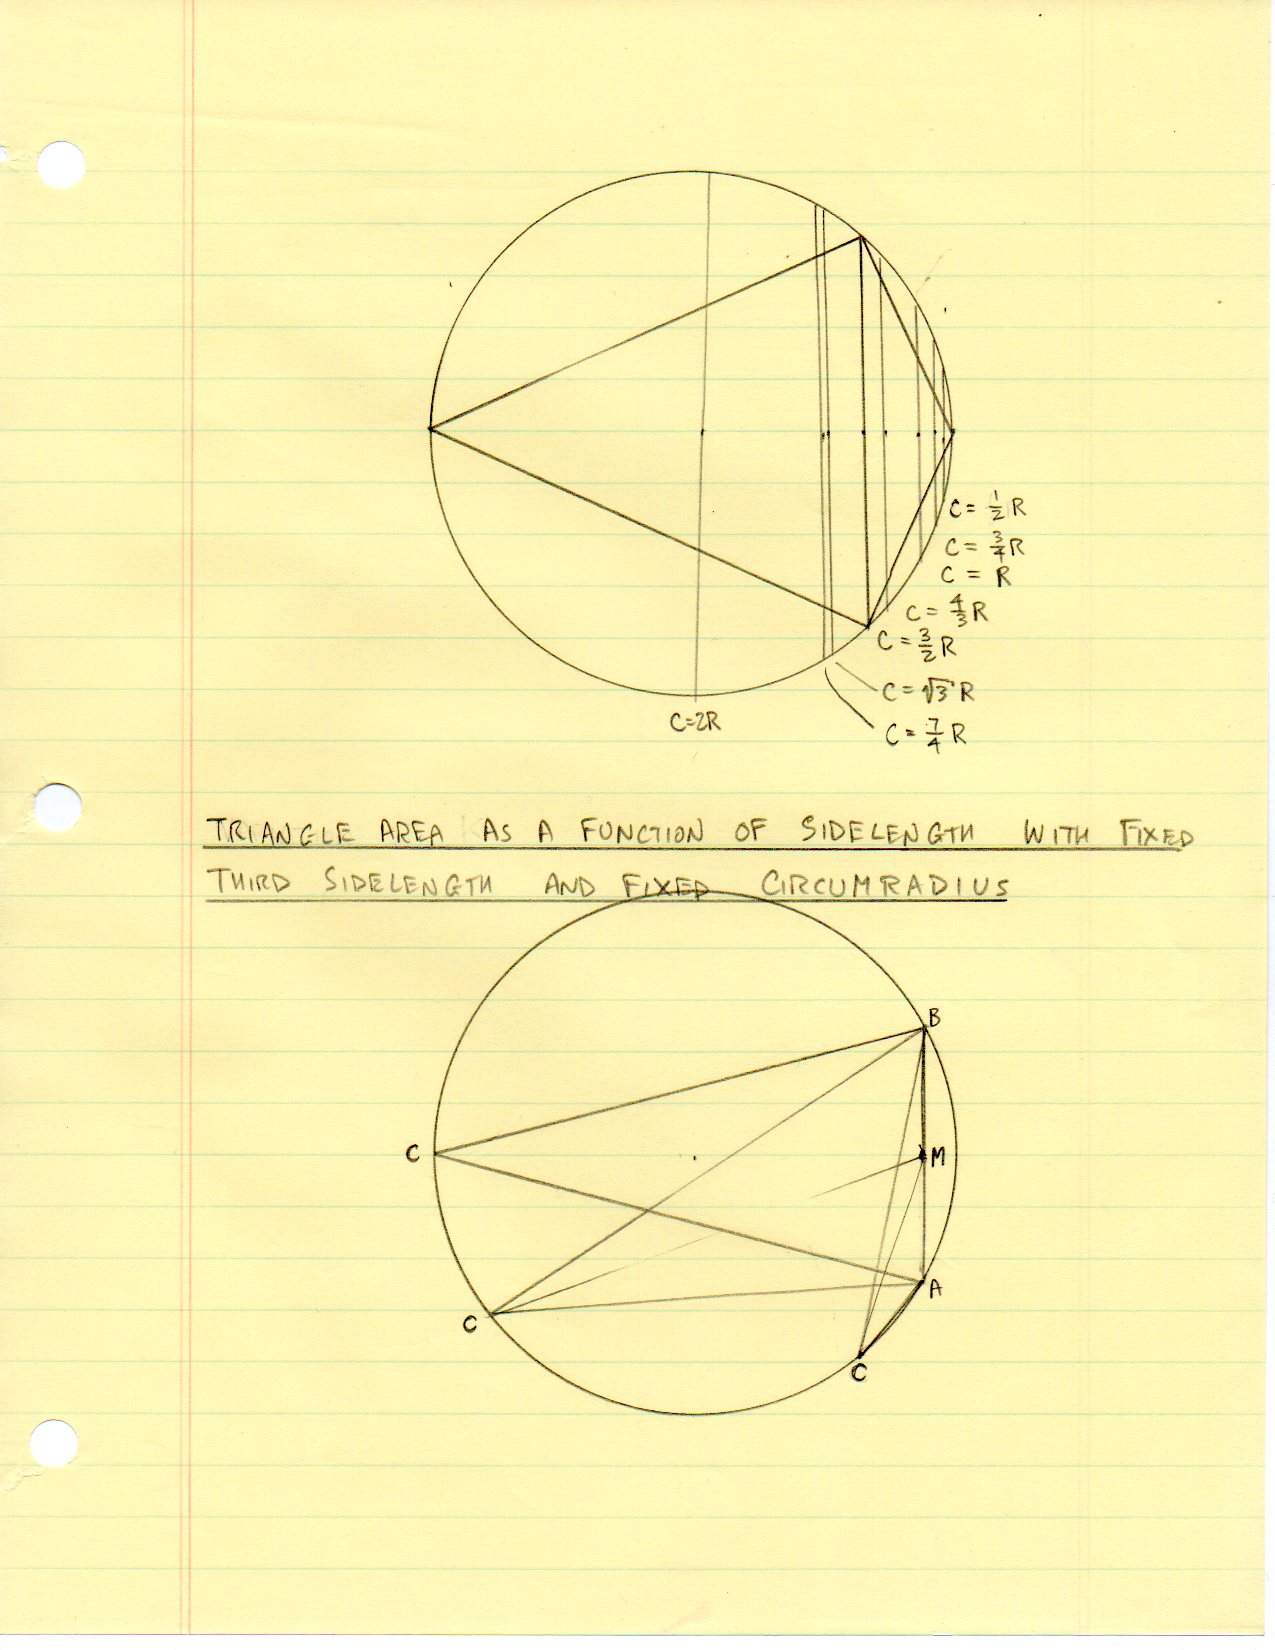 C = 1/2 R
C = 3/4 R
C = R
C = 4/3 R
C = 3/2 R
C = √3 R
C=2R
C = 7/4 R
TRIANGLE AREA AS A FUNCTION OF SIDELENGTH WITH FIXED
THIRD SIDELENGTH AND FIXED CIRCUMRADIUS
B
C
M
A
C
C